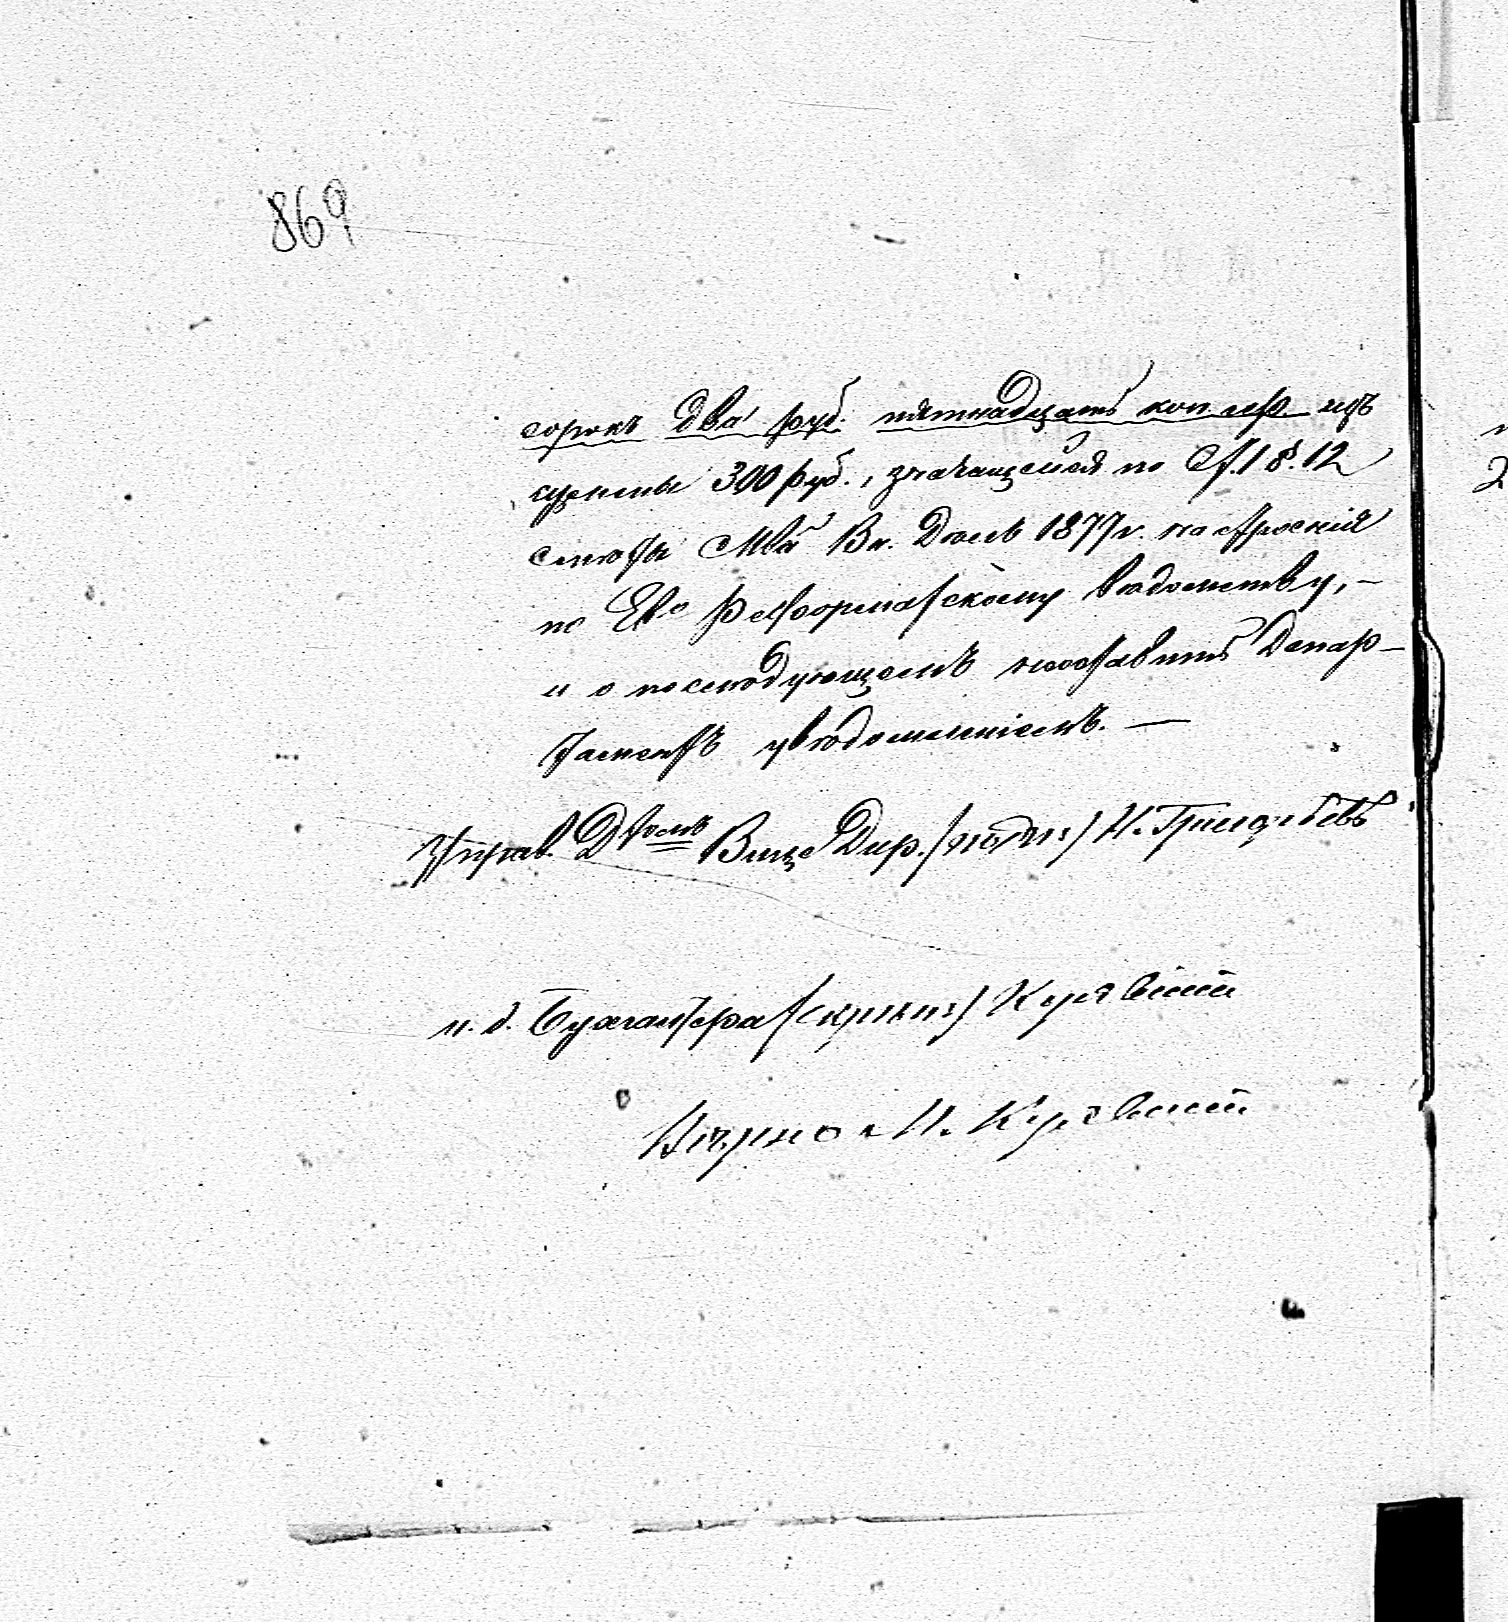 869
сорокъ два руб. пятнадцать копѣекъ изъ
суммы 300 руб., значащейся по ст. 1 §. 12
смѣты Мва Вн. Дѣлъ 1877 г. на строенія
по Ев. Реформатскому вѣдомству, —
и о послѣдующемъ почтить Депар-
таментъ увѣдомленіемъ. —
Управ. Дтомъ Вице Дир. (подп:) Н. Григорьевъ
и. д. Бухгалтера (скрѣп:)
Вѣрно: